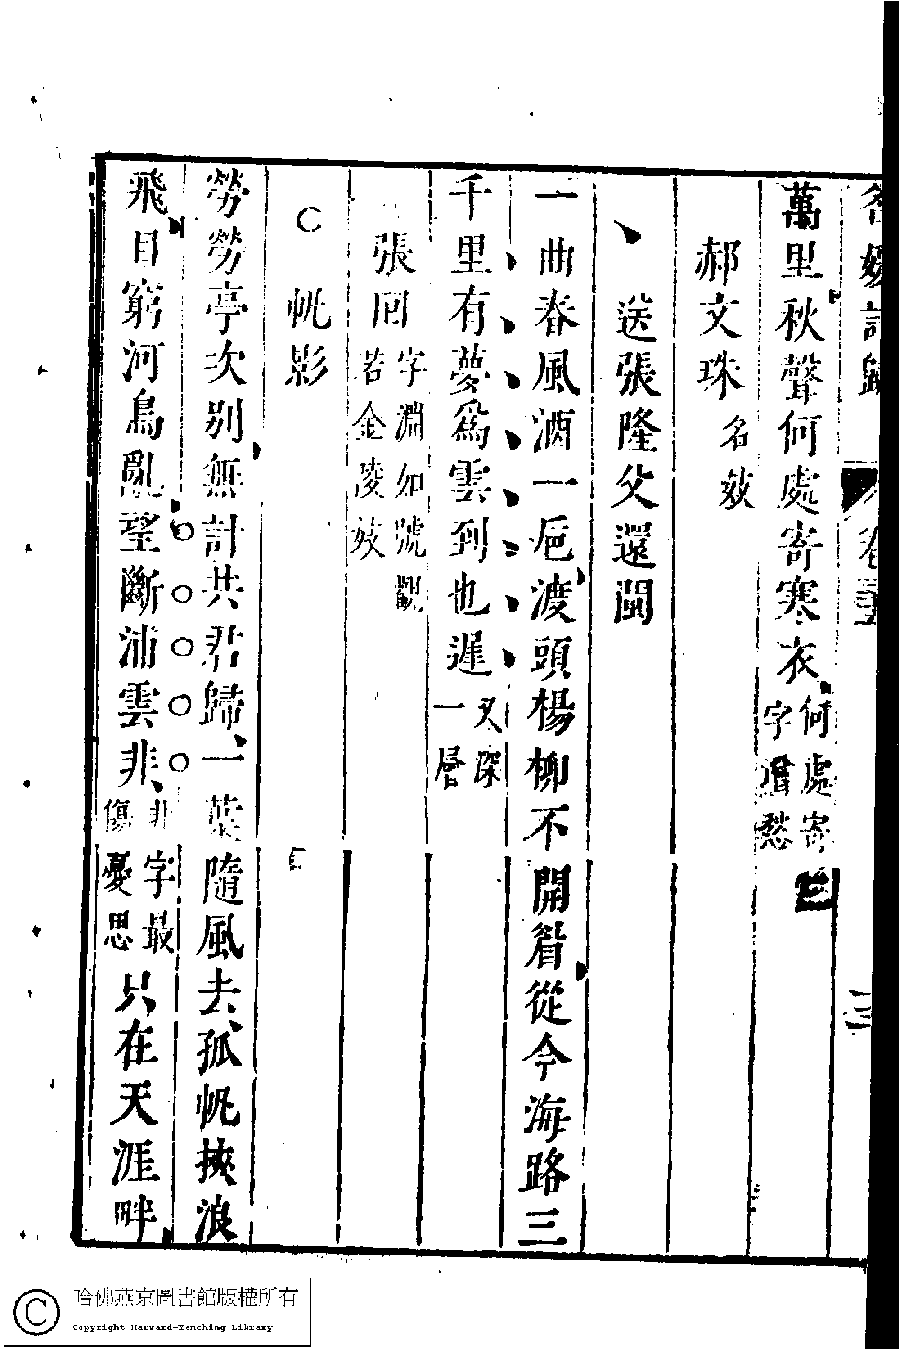 名媛詩歸 卷三
萬里秋聲何處寄寒衣何處寄字增愁
郝文珠名妓
送張隆父還閩
一曲春風酒一巵渡頭楊柳不開眉從今海路三
千里有夢爲雲到也遲又深一層
張回字淵如號觀若金陵妓
帆影
勞勞亭次別無計共君歸一葉隨風去孤帆挾浪
飛目窮河鳥亂望斷浦雲非非字最傷憂思只在天涯畔
哈佛燕京圖書館版權所有
Copyright Harvard-Yenching Library